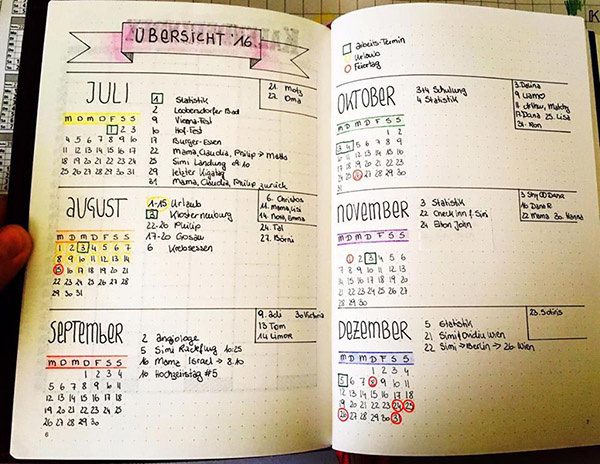 ÜBERSICHT '16
JULI
M D M D F S S
1 2 3
4 5 6 7 8 9 10
11 12 13 14 15 16 17
18 19 20 21 22 23 24
25 26 27 28 29 30 31
1 Statistik
2 Bad
9 Vienna-Fest
10 Hof-Fest
17 Burger-Essen
22 Mama, Claudia, Philip →
25 Simi Landung 09:10
29 letzter Kigatag
31 Mama, Claudia, Philip zurück
21. Motz
22. Oma
AUGUST
M D M D F S S
1 2 3 4 5 6 7
8 9 10 11 12 13 14
15 16 17 18 19 20 21
22 23 24 25 26 27 28
29 30 31
1-15 Urlaub
3 Klosterneuburg
22-26 Philip
17-20 Gosau
6 Krebsessen
6. Christoph
11. Mama, Lisi
14. Emma
24. Tal
27. Börni
SEPTEMBER
M D M D F S S
1 2 3 4
5 6 7 8 9 10 11
12 13 14 15 16 17 18
19 20 21 22 23 24 25
26 27 28 29 30
2 angiologe
5 Simi Rückflug 10:25
16 Mama Israel → 8.10
10 Hochzeitstag #5
9. adi 30 Victoria
13 Tom
14 Limor
6
arbeits-Termin
Urlaub
Feiertag
OKTOBER
M D M D F S S
1 2
3 4 5 6 7 8 9
10 11 12 13 14 15 16
17 18 19 20 21 22 23
24 25 26 27 28 29 30
31
3+4 Schulung
4 Statistik
3.
9.
11.
17. Dana 25. Lisa
31. Ron
NOVEMBER
M D M D F S S
1 2 3 4 5 6
7 8 9 10 11 12 13
14 15 16 17 18 19 20
21 22 23 24 25 26 27
28 29 30
3 Statistik
22 f. Simi
24 Elton John
3 Dana
16 Dana R
22 Mama 30. Hanna
DEZEMBER
M D M D F S S
1 2 3 4
5 6 7 8 9 10 11
12 13 14 15 16 17 18
19 20 21 22 23 24 25
26 27 28 29 30 31
5 Statistik
21 Wien
22 Simi → Berlin → 26. Wien
23.
7